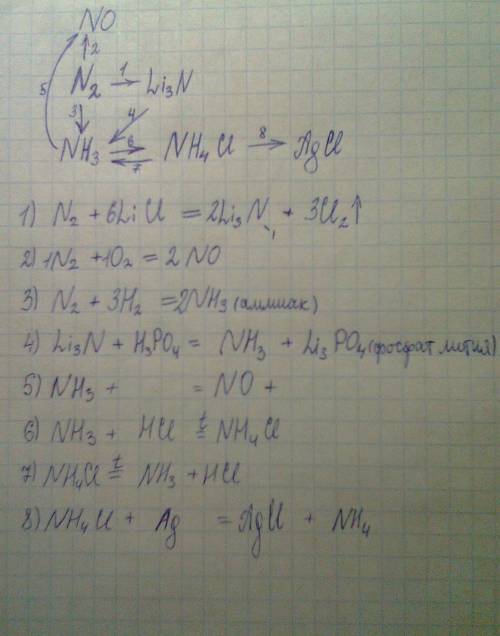 NO
5 ↑2
N₂ 1→ Li₃N
3↓ 4↙
NH₃ 6⇄7 NH₄Cl 8→ AgCl
1) N₂ + 6LiCl = 2Li₃N + 3Cl₂↑
2) 1N₂ + 1O₂ = 2NO
3) N₂ + 3H₂ = 2NH₃ (аммиак)
4) Li₃N + H₃PO₄ = NH₃ + Li₃PO₄ (фосфат лития)
5) NH₃ + = NO +
6) NH₃ + HCl t= NH₄Cl
7) NH₄Cl t= NH₃ + HCl
8) NH₄Cl + Ag = AgCl + NH₄